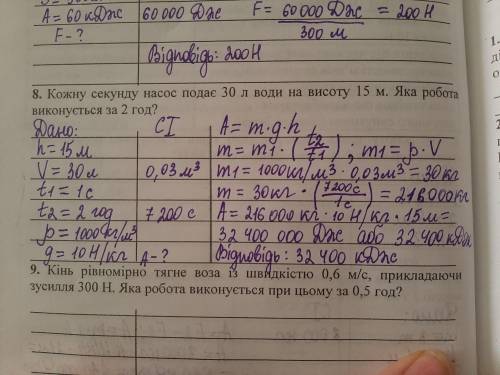 A = 60 кДж 60 000 Дж F = 60 000 Дж / 300 м = 200 Н
F - ?
Відповідь: 200Н
8. Кожну секунду насос подає 30 л води на висоту 15 м. Яка робота
виконується за 2 год?
Дано: СІ A = m·g·h
h = 15 м m = m1 · (t2/t1) ; m1 = ρ · V
V = 30 л 0,03 м³ m1 = 1000 кг/м³ · 0,03 м³ = 30 кг
t1 = 1 с m = 30 кг · (7200 с/1 с) = 216 000 кг
t2 = 2 год 7 200 с A = 216 000 кг · 10 Н/кг · 15 м =
ρ = 1000 кг/м³ 32 400 000 Дж або 32 400 кДж
g = 10 Н/кг A - ? Відповідь: 32 400 кДж
9. Кінь рівномірно тягне воза із швидкістю 0,6 м/с, прикладаючи
зусилля 300 Н. Яка робота виконується при цьому за 0,5 год?